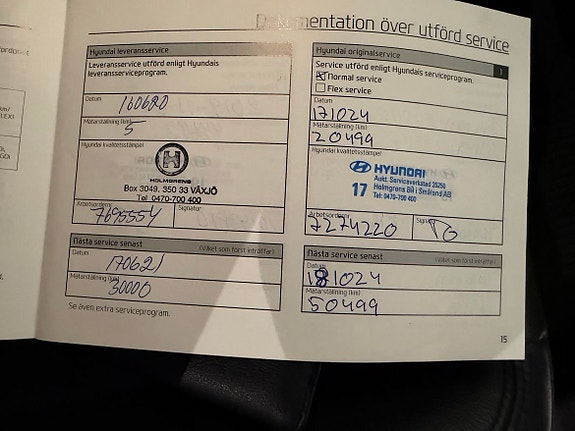 Dokumentation över utförd service
Hyundai leveransservice
Leveransservice utförd enligt Hyundais
leveransserviceprogram.
Datum
160620
Mätarställning (km)
5
Hyundai kvalitetsstämpel
H
HOLMGRENS
Box 3049, 350 33 VÄXJÖ
Tel 0470-700 400
Arbetsordernr
Signatur
7695554
Nästa service senast
(Vilket som först inträffar)
Datum
170621
Mätarställning (km)
30000
Se även extra serviceprogram.
Hyundai originalservice
1
Service utförd enligt Hyundais serviceprogram.
Normal service
Flex service
Datum
171024
Mätarställning (km)
20499
Hyundai kvalitetsstämpel
HYUNDAI
Aukt. Serviceverkstad 35250
17 Holmgrens Bil i Småland AB
Tel: 0470-700 400
Arbetsordernr
7274220
Nästa service senast
(Vilket som först inträffar)
Datum
181024
Mätarställning (km)
50499
15